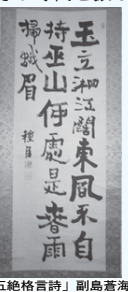 玉立湘江闊東風不自
持巫山何處是春雨
掃蛾眉
種臣
五絶格言詩」副島蒼海